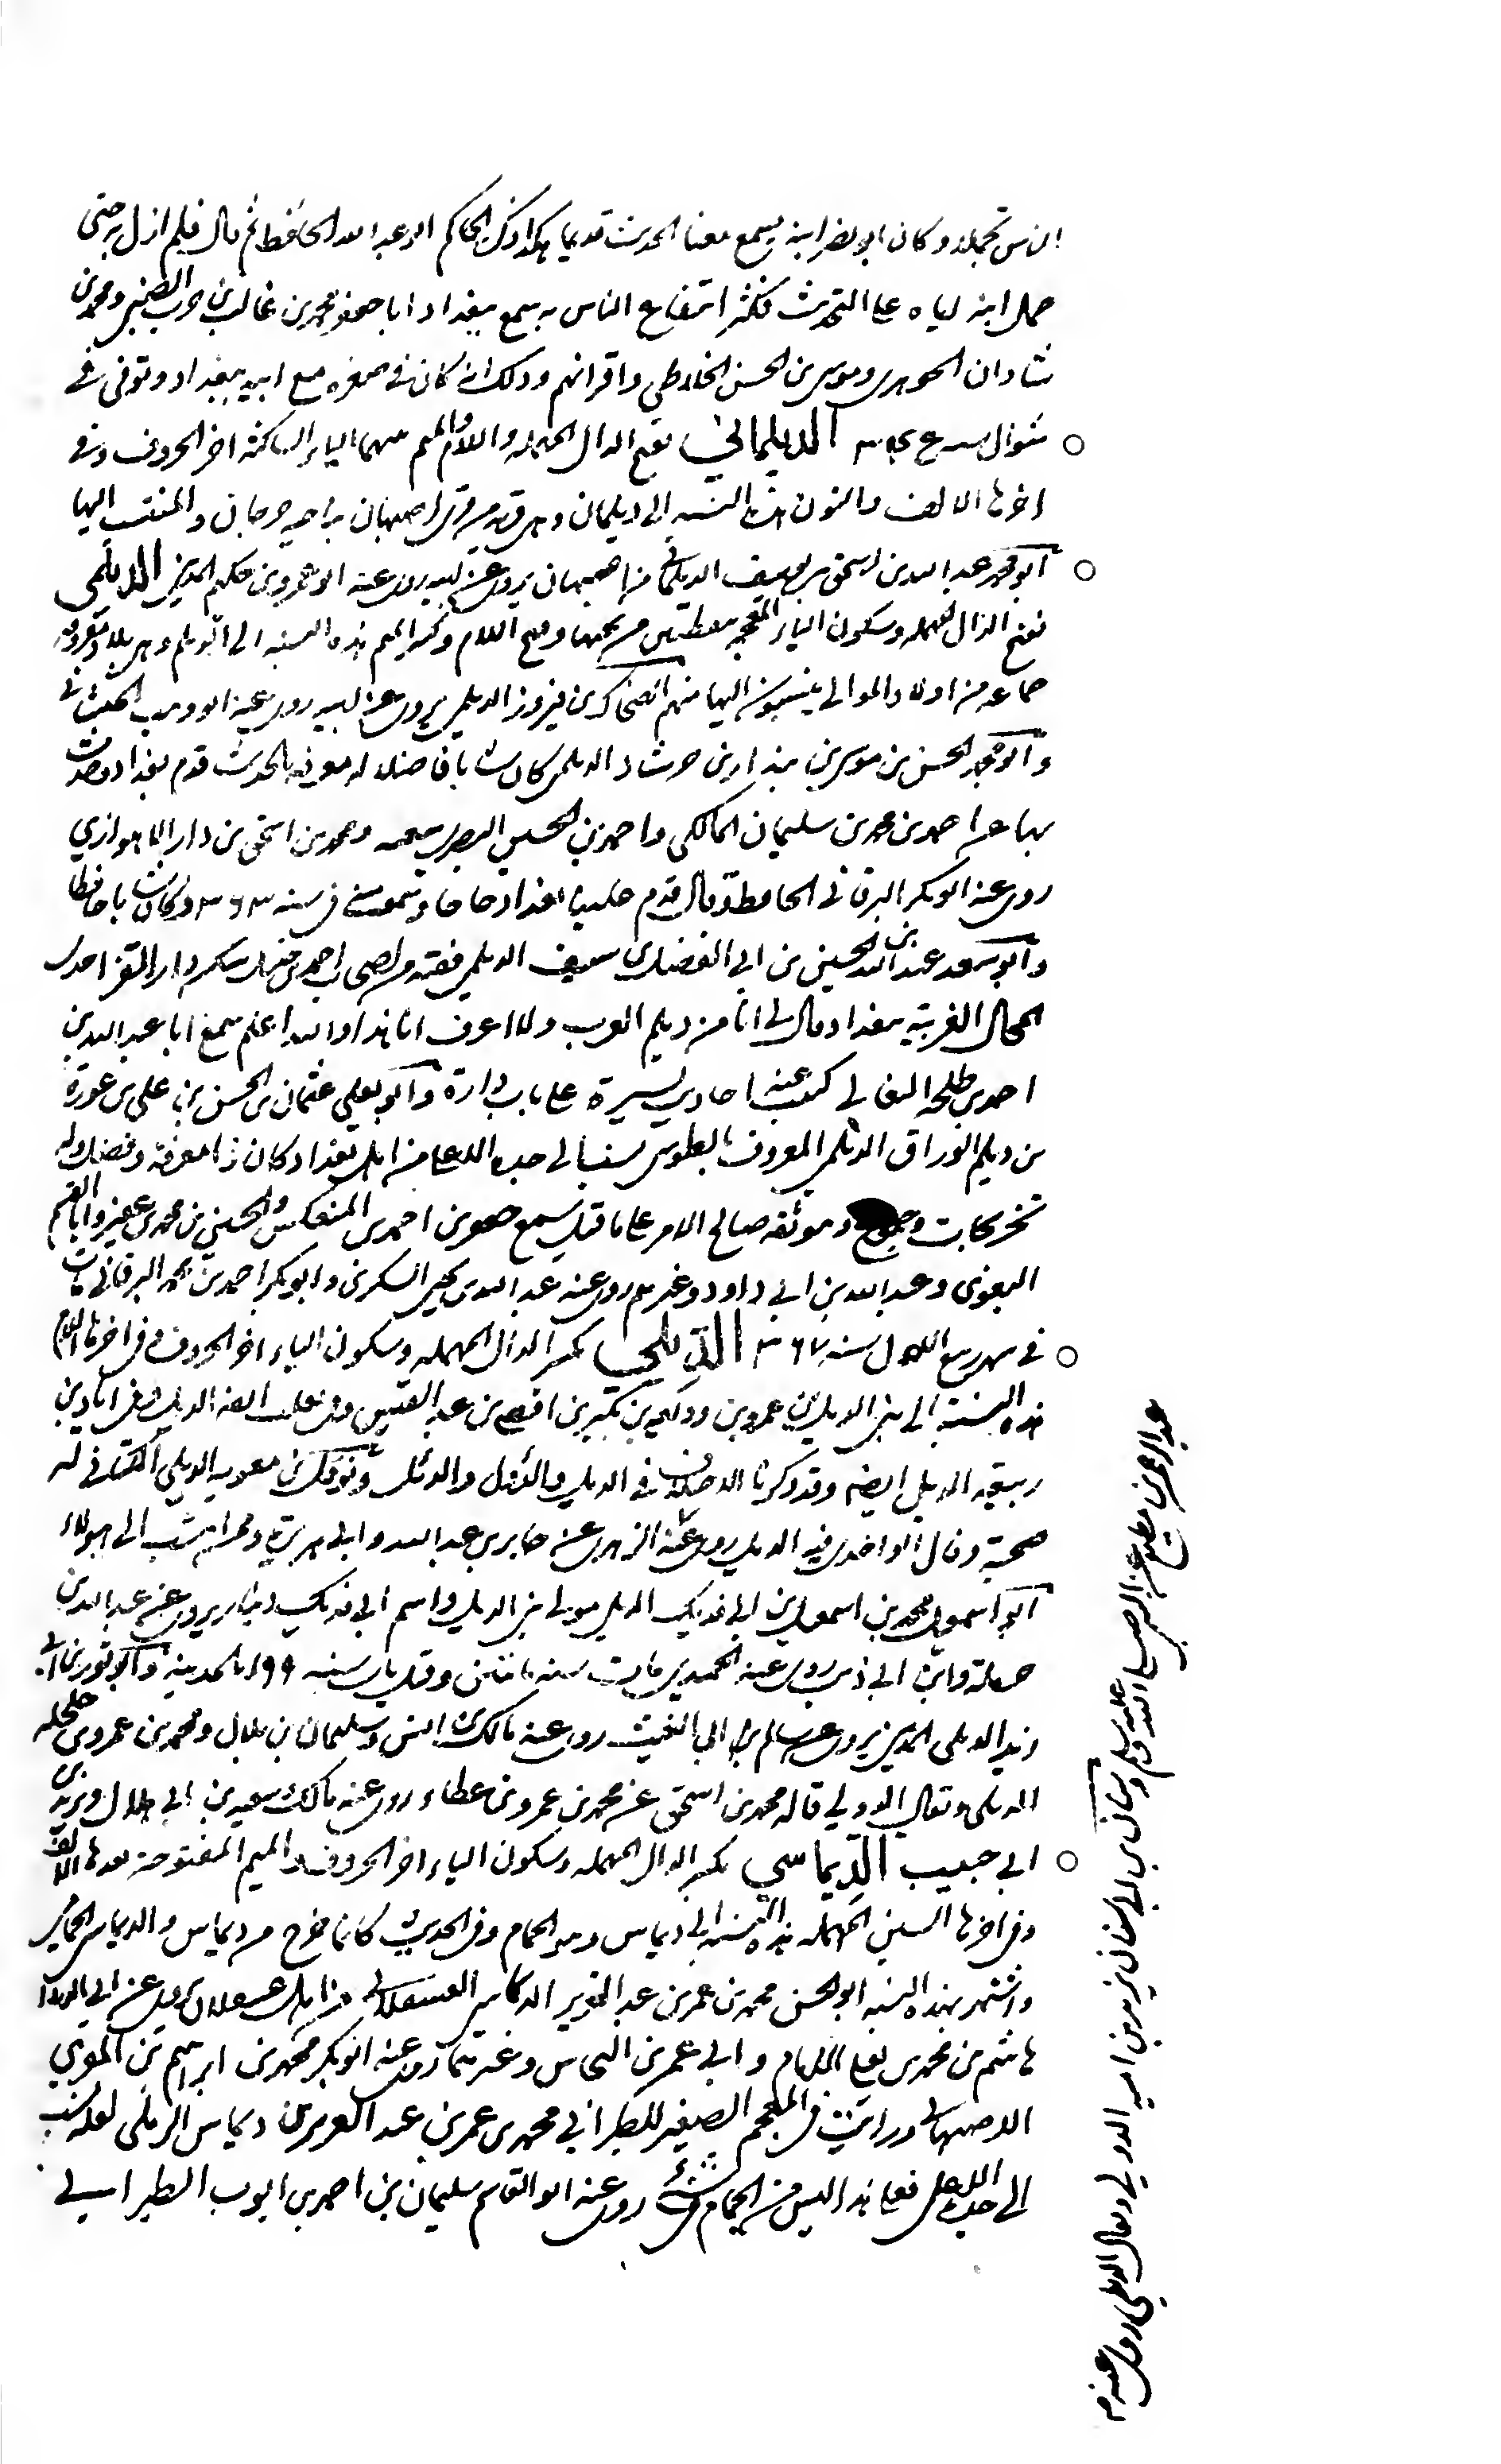 الناس تجملا وكان ابو نصر ابنه يسمع معنا الحديث قديما هكذا ذكر الحاكم ابو عبد الله الحافظ ثم قال فلم ازل به حتى
حمل ابنه اياه على التحديث فكثر انتفاع الناس به سمع ببغداد ابا جعفر محمد بن غالب بن حرب الضبي ومحمد بن
شاذان الجوهري وموسى بن الحسن الجلاجلي واقرانهم وذلك انه كان في صغره مع ابيه ببغداد وتوفي في
شوال سنة الديلماني بفتح الدال المهملة واللام والميم بينهما الياء الساكنة اخر الحروف وفي
اخرها الالف والنون هذه النسبة الى ديلمان وهي قرية من قرى اصبهان بناحية جرجان والمنتسب اليها
ابو محمد عبد الله بن اسحق بن يوسف الديلماني من اصبهان يروي عن ابيه روى عنه ابو عمرو بن حكيم المديني الديلمي
بفتح الدال المهملة وسكون الياء المعجمة بنقطتين من تحتها وفتح اللام وكسر الميم هذه النسبة الى الديلم وهي بلاد معروفة
جماعة من اولاد الموالي ينسبون اليها منهم الضحاك بن فيروز الديلمي يروي عن ابيه روى عنه ابو وهب الجيشاني
وابو محمد الحسن بن موسى بن بندار بن خرشاذ الديلمي كان شابا فاضلا له معرفة بالحديث قدم بغداد وحدث
بها عن احمد بن محمد بن سليمان المالكي واحمد بن الحسين البصري ومحمد بن اسحق بن دارا الاهوازي
روى عنه ابو بكر البرقاني الحافظ وقال قدم علينا بغداد حاجا وسمعت منه في سنة ٣٦٣ وكان شابا حافظا
وابو سعد عبد الله بن الحسين بن ابي الفضل بن سيف الديلمي فقيه من اصحاب احمد بن حنبل سكن دار القز احدى
المحال الغربية ببغداد وقال لي انا من ديلم العرب ولا اعرف انا هذا والله اعلم سمع ابا عبد الله بن
احمد بن طلحة النعالي كتبت عنه احاديث يسيرة على باب داره وابو يعلى عثمان بن الحسن بن علي بن عزرة
بن ديلم الوراق الديلمي المعروف بالطوسي نسب الى جده الاعلى من اهل بغداد كان ذا معرفة وفضل وله
تخريجات وجموع وهو ثقة صالح الامر على ما قيل سمع جعفر بن احمد بن المنعكس والحسين بن محمد بن عفير وابا القسم
البغوي وعبد الله بن ابي داود وغيرهم روى عنه عبد الله بن يحيى السكري وابو بكر احمد بن محمد البرقاني مات
في شهر ربيع الاول سنة ٣٦٧ الديلي بكسر الدال المهملة وسكون الياء اخر الحروف وفي اخرها اللام
هذه النسبة الى بني الديل بن عمرو بن وديعة بن لكيز بن افصى بن عبد القيس وفي تغلب ايضا الديل وفي اياد بن
ربيعة الديل ايضا وقد ذكرنا الاختلاف في الديل والدول والدئل ونوفل بن معوية الديلي الكناني له
صحبة وقال الواقدي فيه الديلي روى عنه الزهري عن جابر بن عبد الله وابي هريرة وممن ينسب الى هولاء
ابو اسمعيل محمد بن اسمعيل بن ابي فديك الديلي مولى بني الديل واسم ابي فديك دينار يروي عن عبد الله بن
حرملة وابن ابي ذئب روى عنه الحميدي مات سنة مائتين وقد قيل سنة ١٩٩ بالمدينة وابو ثور بن
زيد الديلي المديني يروي عن سالم ابي الغيث روى عنه مالك بن انس وسليمان بن بلال ومحمد بن عمرو بن حلحلة
الديلي ويقال الدولي قاله محمد بن اسحق عن محمد بن عمرو بن عطاء روى عنه مالك وسعيد بن ابي هلال ويزيد بن
ابي حبيب الديماسي بكسر الدال المهملة وسكون الياء اخر الحروف والميم المفتوحة بعدها الالف
وفي اخرها السين المهملة هذه النسبة الى ديماس وهو الحمام وفي الحديث كانما خرج من ديماس والديماس الحمام
واشتهر بهذه النسبة ابو الحسن محمد بن عمر بن عبد العزيز الديماسي العسقلاني من اهل عسقلان يروي عن ابي الدرداء
هاشم بن محمد بن يعلى الامام وابي عمير بن النحاس وغيرهما روى عنه ابو بكر محمد بن ابراهيم بن المقري
الاصبهاني ورايت في المعجم الصغير للطبراني محمد بن عمر بن عبد العزيز بن ديماس الرملي لعله نسب
الى جده الاعلى فعلى هذا ليس من الحمام في شيء روى عنه ابو القاسم سليمان بن احمد بن ايوب الطبراني
عبد الرحمن بن مطيع عن النبي صلى الله عليه وسلم وسنان بن ابي سنان يزيد بن امية الدولي ويقال الديلي روى عنه م